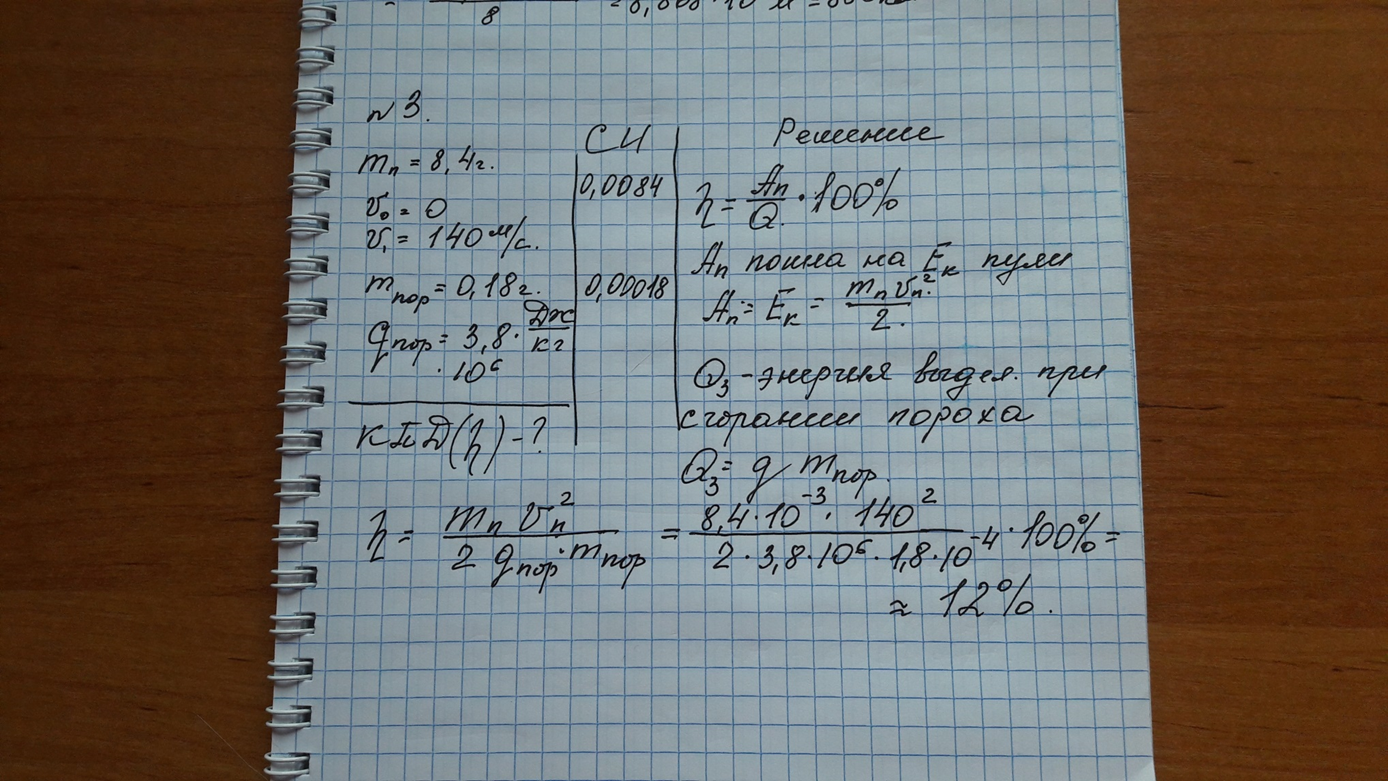 8
n 3.
mп = 8,4г.
v₀ = 0
v₁ = 140 м/с.
mпор = 0,18г.
qпор = 3,8 · Дж/кг
· 10⁶
КПД(η) - ?
СИ
0,0084
0,00018
Решение
η = Aп/Q · 100%
Aп пошла на Eк пули
Aп = Eк = mп vп²/2.
Q₃ - энергия выдел. при
сгорании пороха
Q₃ = q mпор.
η = mп vп²/2 qпор · mпор = 8,4·10⁻³ · 140²/2 · 3,8·10⁶ · 1,8·10⁻⁴ · 100% =
≈ 12%.